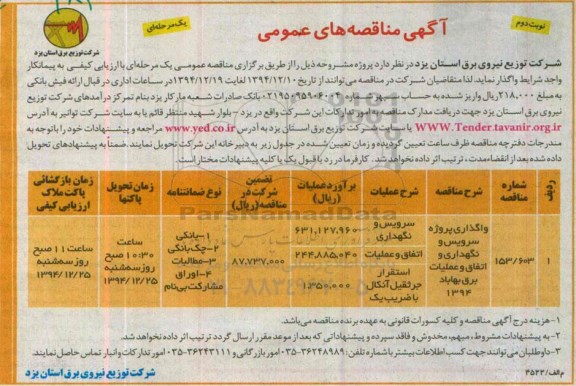 نوبت دوم
آگهی مناقصه‌های عمومی
یک مرحله‌ای
شرکت توزیع برق استان یزد
شرکت توزیع نیروی برق استان یزد در نظر دارد پروژه مشروحه ذیل را از طریق برگزاری مناقصه عمومی یک مرحله‌ای با ارزیابی کیفی به پیمانکار
واجد شرایط واگذار نماید. لذا متقاضیان شرکت در مناقصه می‌توانند از تاریخ ۱۳۹۴/۱۲/۱۰ لغایت ۱۳۹۴/۱۲/۱۹ در ساعات اداری در قبال ارائه فیش بانکی
به مبلغ ۲۱۸،۰۰۰ ریال واریز شده به حساب سپهر شماره بانک صادرات شعبه مارکار یزد بنام تمرکز درآمدهای شرکت توزیع
نیروی برق استان یزد جهت دریافت مدارک مناقصه به امور تدارکات این شرکت واقع در یزد - بلوار شهید منتظر قائم یا به سایت شرکت توانیر به آدرس
WWW.Tender.tavanir.org.ir یا سایت شرکت توزیع برق استان یزد به آدرس www.yed.co.ir مراجعه و پیشنهادات خود را با توجه به
مندرجات دفترچه مناقصه ظرف ساعت تعیین گردیده و زمان تعیین شده در جدول زیر به دبیرخانه این شرکت تحویل نمایند. ضمناً به پیشنهادهای تحویل
داده شده بعد از انقضاء مدت، ترتیب اثر داده نخواهد شد. کارفرما در رد یا قبول یک یا کلیه پیشنهادات مختار است.
ردیف
شماره مناقصه
شرح مناقصه
شرح عملیات
برآورد عملیات (ریال)
تضمین شرکت در مناقصه (ریال)
نوع ضمانتنامه
زمان تحویل پاکتها
زمان بازگشائی پاکت ملاک ارزیابی کیفی
۱
۱۵۳/۶۰۳
واگذاری پروژه
سرویس و
نگهداری و
اتفاق و عملیات
برق بهاباد
۱۳۹۴
سرویس و نگهداری
۶۳۱،۱۲۷،۹۶۰
اتفاق و عملیات
۲۴۴،۸۸۵،۰۴۰
استقرار
جرثقیل آنکال
با ضریب یک
۱،۳۵۰،۰۰۰
۸۷،۷۳۷،۰۰۰
۱-بانکی
۲-چک بانکی
۳-مطالبات
۴-اوراق
مشارکت بی‌نام
ساعت
۱۰:۳۰ صبح
روز سه‌شنبه
۱۳۹۴/۱۲/۲۵
ساعت ۱۱ صبح
روز سه‌شنبه
۱۳۹۴/۱۲/۲۵
۱- هزینه درج آگهی مناقصه و کلیه کسورات قانونی به عهده برنده مناقصه می‌باشد.
۲- به پیشنهادات مشروط، مبهم، مخدوش و فاقد سپرده و پیشنهاداتی که بعد از موعد مقرر ارسال گردد ترتیب اثر داده نخواهد شد.
۳- داوطلبان می‌توانند جهت کسب اطلاعات بیشتر با شماره تلفن: ۳۶۲۴۸۹۸۹-۰۳۵ امور بازرگانی و ۳۶۲۴۳۱۱۱-۰۳۵ امور تدارکات و انبار تماس حاصل نمایند.
م الف/۳۵۲۳
شرکت توزیع نیروی برق استان یزد